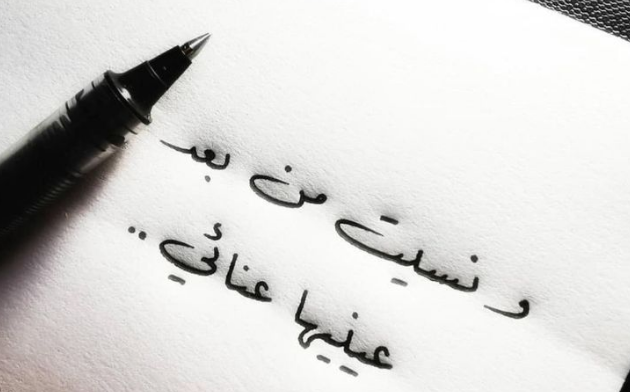 و نسيت من بعد
عينيها عنائي ..